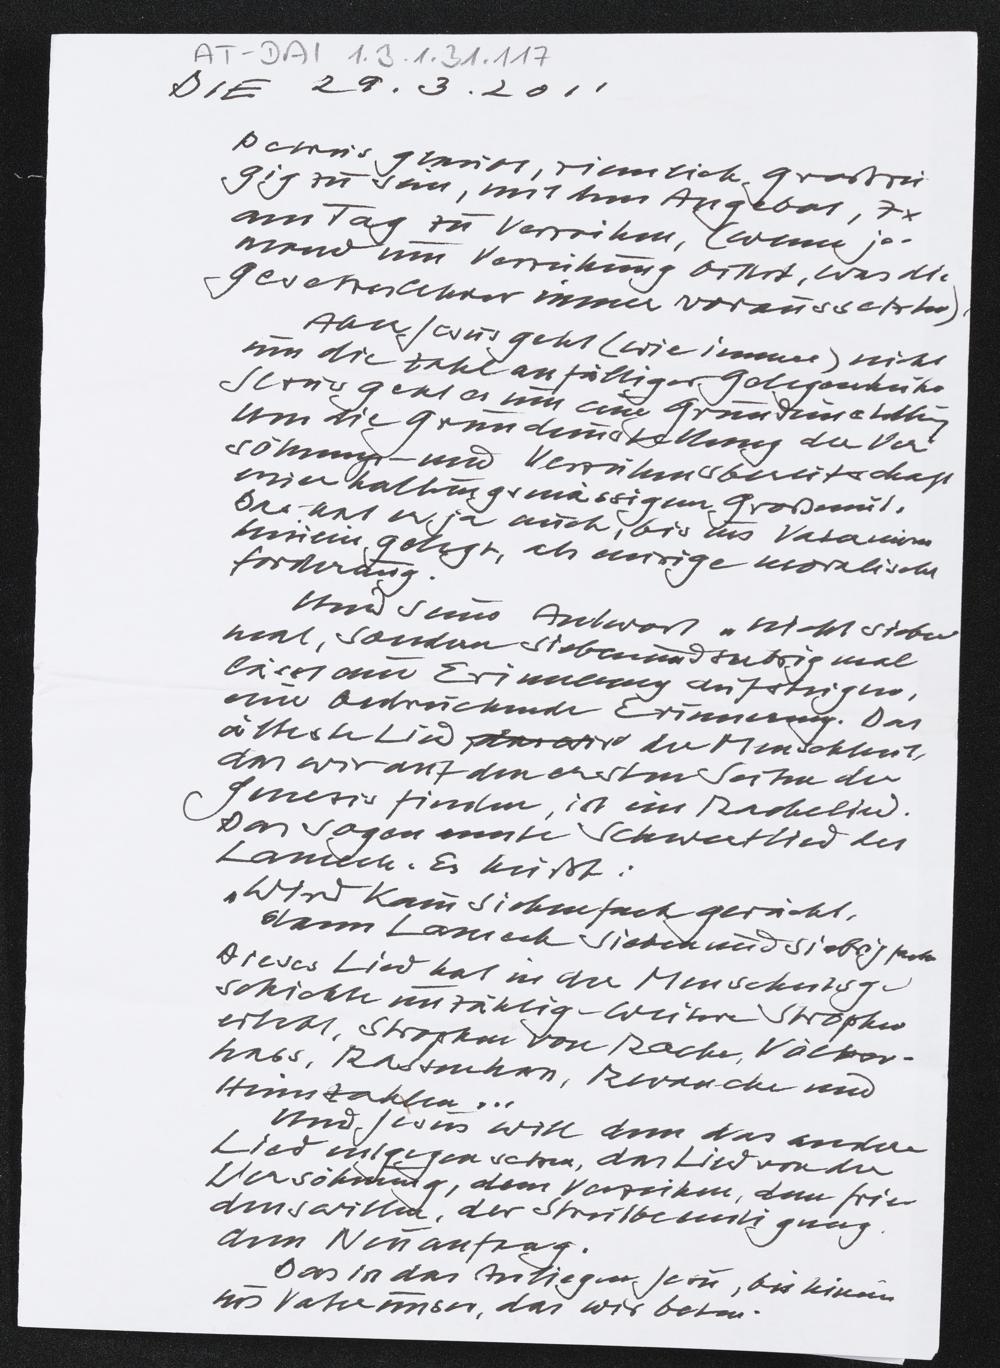 AT-DAI 1.3.1.31.117
DIE 29.3.2011
Petrus glaubt, ziemlich grosszü
gig zu sein, mit dem Angebot, 7x
am Tag zu Verzeihen, (wenn je-
mand um Verzeihung bittet, was die
Gesetzeslehrer immer voraussetzten).
Aber Jesus geht (wie immer) nicht
um die Zahl anfälliger Gelegenheiten
Jesus geht es um eine Grundeinstellung
Um die Grundeinstellung der Ver
söhnungs- und Verzeihensbereitschaft
einer haltungsmässigen Großmut.
Das hat er ja auch, bis ins Vaterunser
hinein gelegt, als einzige moralische
forderung.
Und seine Antwort „nicht sieben
mal, sondern siebenundsiebzig mal
lässt eine Erinnerung aufsteigen,
eine bedrückende Erinnerung. Das
älteste Lied der Menschheit,
das wir auf den ersten Seiten der
Genesis finden, ist ein Rachelied.
Das sogenannte Schwertlied des
Lamech. Es heißt:
„Wird Kain siebenfach gerächt,
dann Lamech siebenundsiebzigfach
Dieses Lied hat in der Menschheitsge-
schichte unzählig weitere Strophen
erlebt, Strophen von Rache, Völker-
hass, Rassenhass, Revanche und
Heimzahlen...
Und Jesus will dem das andere
Lied entgegen setzen, das Lied von der
Versöhnung, dem Verzeihen, dem frie
denswillen, der Streitbeendigung
dem Neuanfang.
Das ist das Anliegen Jesu, bis hinein
ins Vaterunser, das wir beten.